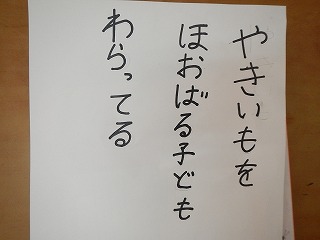 やきいもを
ほおばる子ども
わらってる